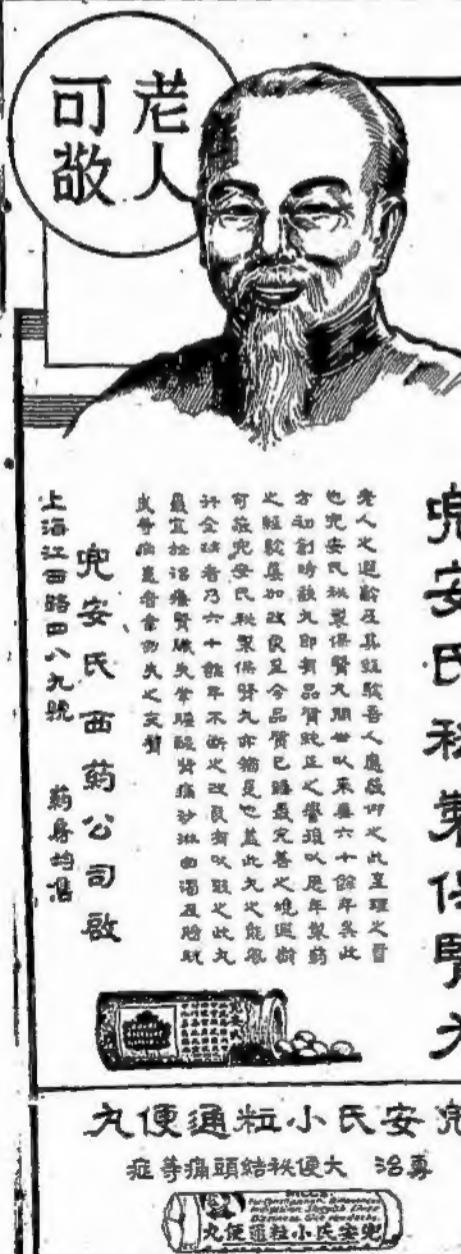 老人
可敬
兜安氏秘製保腎丸
老人之遐齡及其經驗吾人應敬仰之此至理之言
也兜安氏秘製保腎丸問世以來垂六十餘年矣此
方初創時該丸即有品質純正之譽復以歷年製藥
之經驗屢加改良至今品質已臻最完善之境遐齡
可敬兜安氏秘製保腎丸亦猶是也蓋此丸之能風
行全球者乃六十餘年不斷之改良有以致之此丸
最宜於治療腎臟失常腰酸背痛砂淋血濁及膀胱
炎等症患者當勿失之交臂
兜安氏西藥公司啟
上海江西路四八九號 藥房均售
兜安氏小粒通便丸
專治 大便秘結頭痛等症
兜安氏小粒通便丸